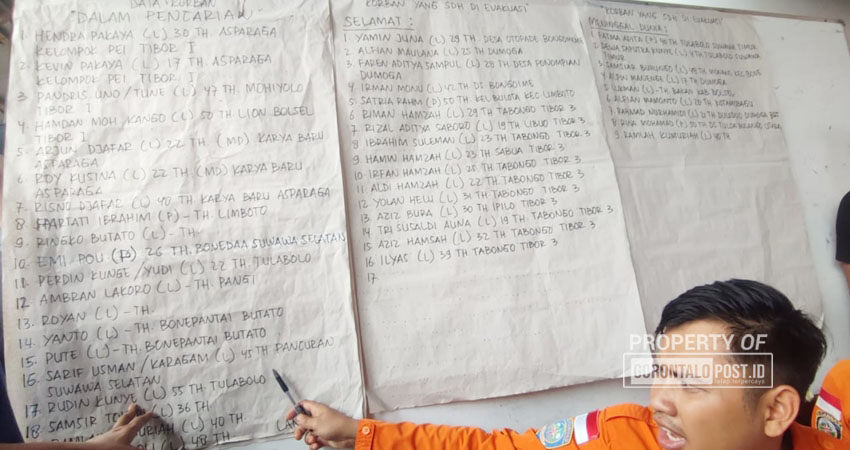 DATA KORBAN
"DALAM PENCARIAN"
1. HENDRA PAKAYA (L) 30 TH. ASPARAGA
KELOMPOK PEI TIBOR I
2. KEVIN PAKAYA (L) 17 TH ASPARAGA
KELOMPOK PEI TIBOR I
3 PANDRIS UNO/TUNE (L) 47 TH. MOHIYOLO
TIBOR I
4 HAMDAN MOH. KANGO (L) 50 TH LION BOLSEL
TIBOR I
5 ARJUN DJAFAR (L) 22 TH. (MD) KARYA BARU
ASPARAGA
6 ROY KUSINA (L) 22 TH (MD) KARYA BARU
ASPARAGA
7 RISNO DJAFAR (L) 40 TH KARYA BARU ASPARAGA
8 HARTATI IBRAHIM (P) - TH. LIMBOTO
9 RINGKO BUTATO (L) - TH.
10. EMI POU (P) 26 TH. BONEDAA SUWAWA SELATAN
11 PERDIN KUNGE/YUDI (L) 22 TH. TULABOLO
12 AMBRAN LAKORO (L) - TH PANGI
13. ROYAN (L) - TH
14. YANTO (L) - TH. BONEPANTAI BUTATO
15. PUTE (L) - TH. BONEPANTAI BUTATO
16. SARIF USMAN/KARAGAM (L) 45 TH PANCURAN
SUWAWA SELATAN
17 RUDIN KUNYE (L) 55 TH TULABOLO
18. SAMSIR (L) 36 TH
(L) 40 TH.
48 TH
KORBAN YANG SDH DI EVAKUASI
SELAMAT :
1. YAMIN JUNA (L) 29 TH. DESA
2. ALFIAN MAULANA (L) 25 TH DUMOGA
3. FAREN ADITYA SAMPUL (L) 20 TH DESA PONOMPIAN
DUMOGA
4 IRMAN MONU (L) 42 TH DS BONGOIME
5 SATRIA RAHIM (P) 50 TH KEL BULOTA KEC LIMBOTO
6 RIMAN HAMZAH (L) 29 TH TABONGO TIBOR 3
7 RIZAL ADITYA SABORO (L) 19 TH LIBUO TIBOR 3
8 IBRAHIM SULEMAN (L) 23 TH TABONGO TIBOR 3
9 HAMIN HAMZAH (L) 25 TH SABUA TIBOR 3
10 IRFAN HAMZAH (L) 25 TH TABONGO TIBOR 3
11 ALDI HAMZAH (L) 22 TH. TABONGO TIBOR 3
12 YOLAN HELU (L) 31 TH TABONGO TIBOR 3
13 AZIZ BURA (L) 30 TH IPILO TIBOR 3
14 TRI SUSALDI AUNA (L) 19 TH. TABONGO TIBOR 3
15 AZIZ HAMSAH (L) 32 TH TABONGO TIBOR 3
16 ILYAS (L) 39 TH TABONGO TIBOR 3
17
KORBAN YANG SDH DI EVAKUASI
MENINGGAL DUNIA :
1. FATMA ADITA (P) 40 TH TULABOLO SUWAWA TIMUR
2. (L) 4 TH TULABOLO SUWAWA
TIMUR
3. SAMSIAR (L)
4 ALFIN (L) DUMOGA
5 (L) - TH. BAKAN KAB BOLSEL
6 ALFIAN MAMONTO (L) 20 TH KOTAMOBAGU
7 RAHMAD MOKHAMAD (L)
8 RISA MOHAMAD (P)
9 RAMLAH KUMURIAH (L) 40 TH
PROPERTY OF
GORONTALOPOST.ID
tetap terpercaya